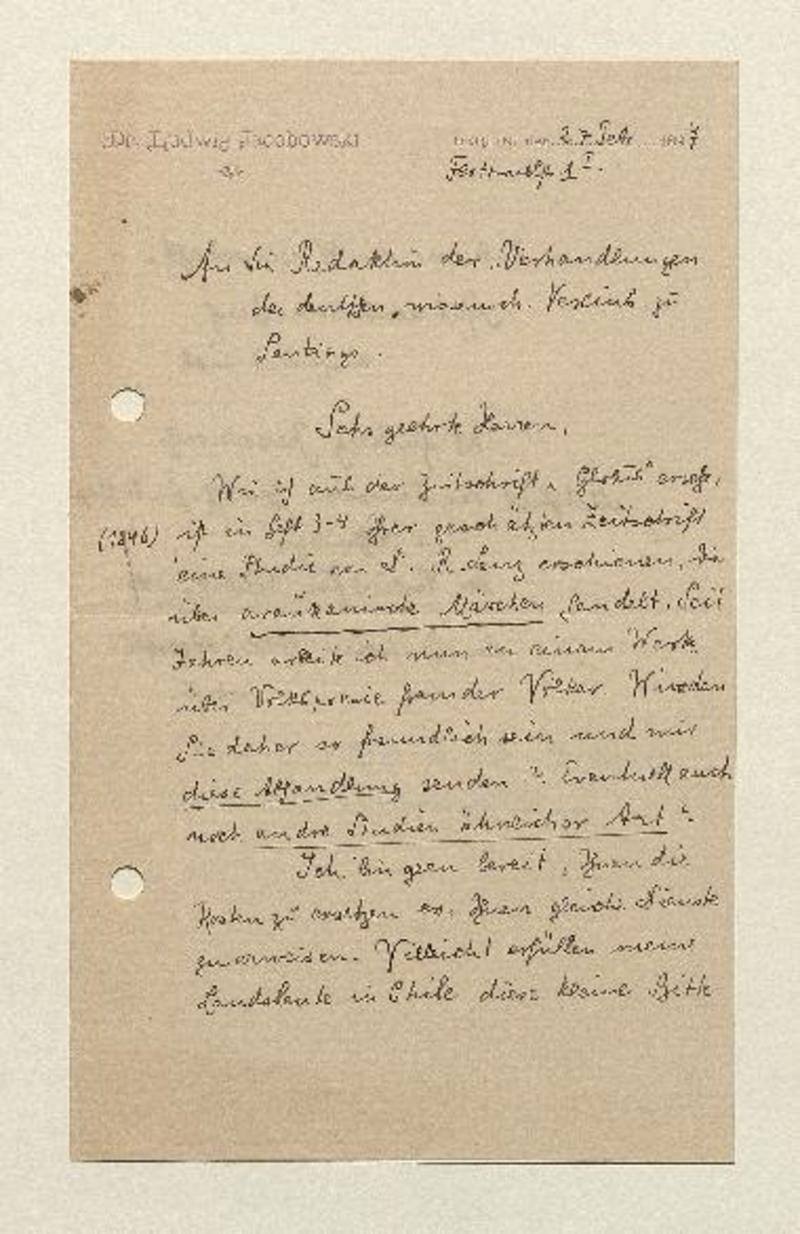 Dr. Ludwig Jacobowski
den 27 Febr. 1897
1 I.
An die Redaktion der „Verhandlungen
des deutschen wissensch. Vereins zu
Santiago.
Sehr geehrte Herren,
Wie ich aus der Zeitschrift „Globus" ersehe,
(1896) ist in Heft 3-4 Ihrer geschätzten Zeitschrift
eine Studie von Dr. R. Lenz erschienen, die
über araukanische Märchen handelt. Seit
Jahren arbeite ich nun an einem Werk
über Volkspoesie fremder Völker. Würden
Sie daher so freundlich sein und mir
diese Abhandlung senden? Eventuell auch
noch andre Studien ähnlicher Art?
Ich bin gern bereit, Ihnen die
Kosten zu ersetzen ev. Ihnen gleiche Dienste
zu erweisen. Vielleicht erfüllen meine
Landsleute in Chile diese kleine Bitte